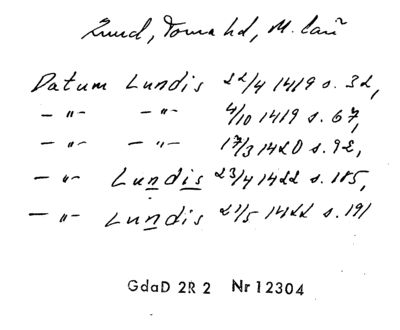 Lund, Tomahd, M. Can
Datum Lundis 22/4 1419 s. 32,
— " — — " — 4/10 1419 s. 67,
— " — — " — 17/3 1420 s. 92,
— " — Lundis 23/4 1422 s. 185,
— " — Lundis 21/5 1422 s. 191
GdaD 2R 2 Nr 12304